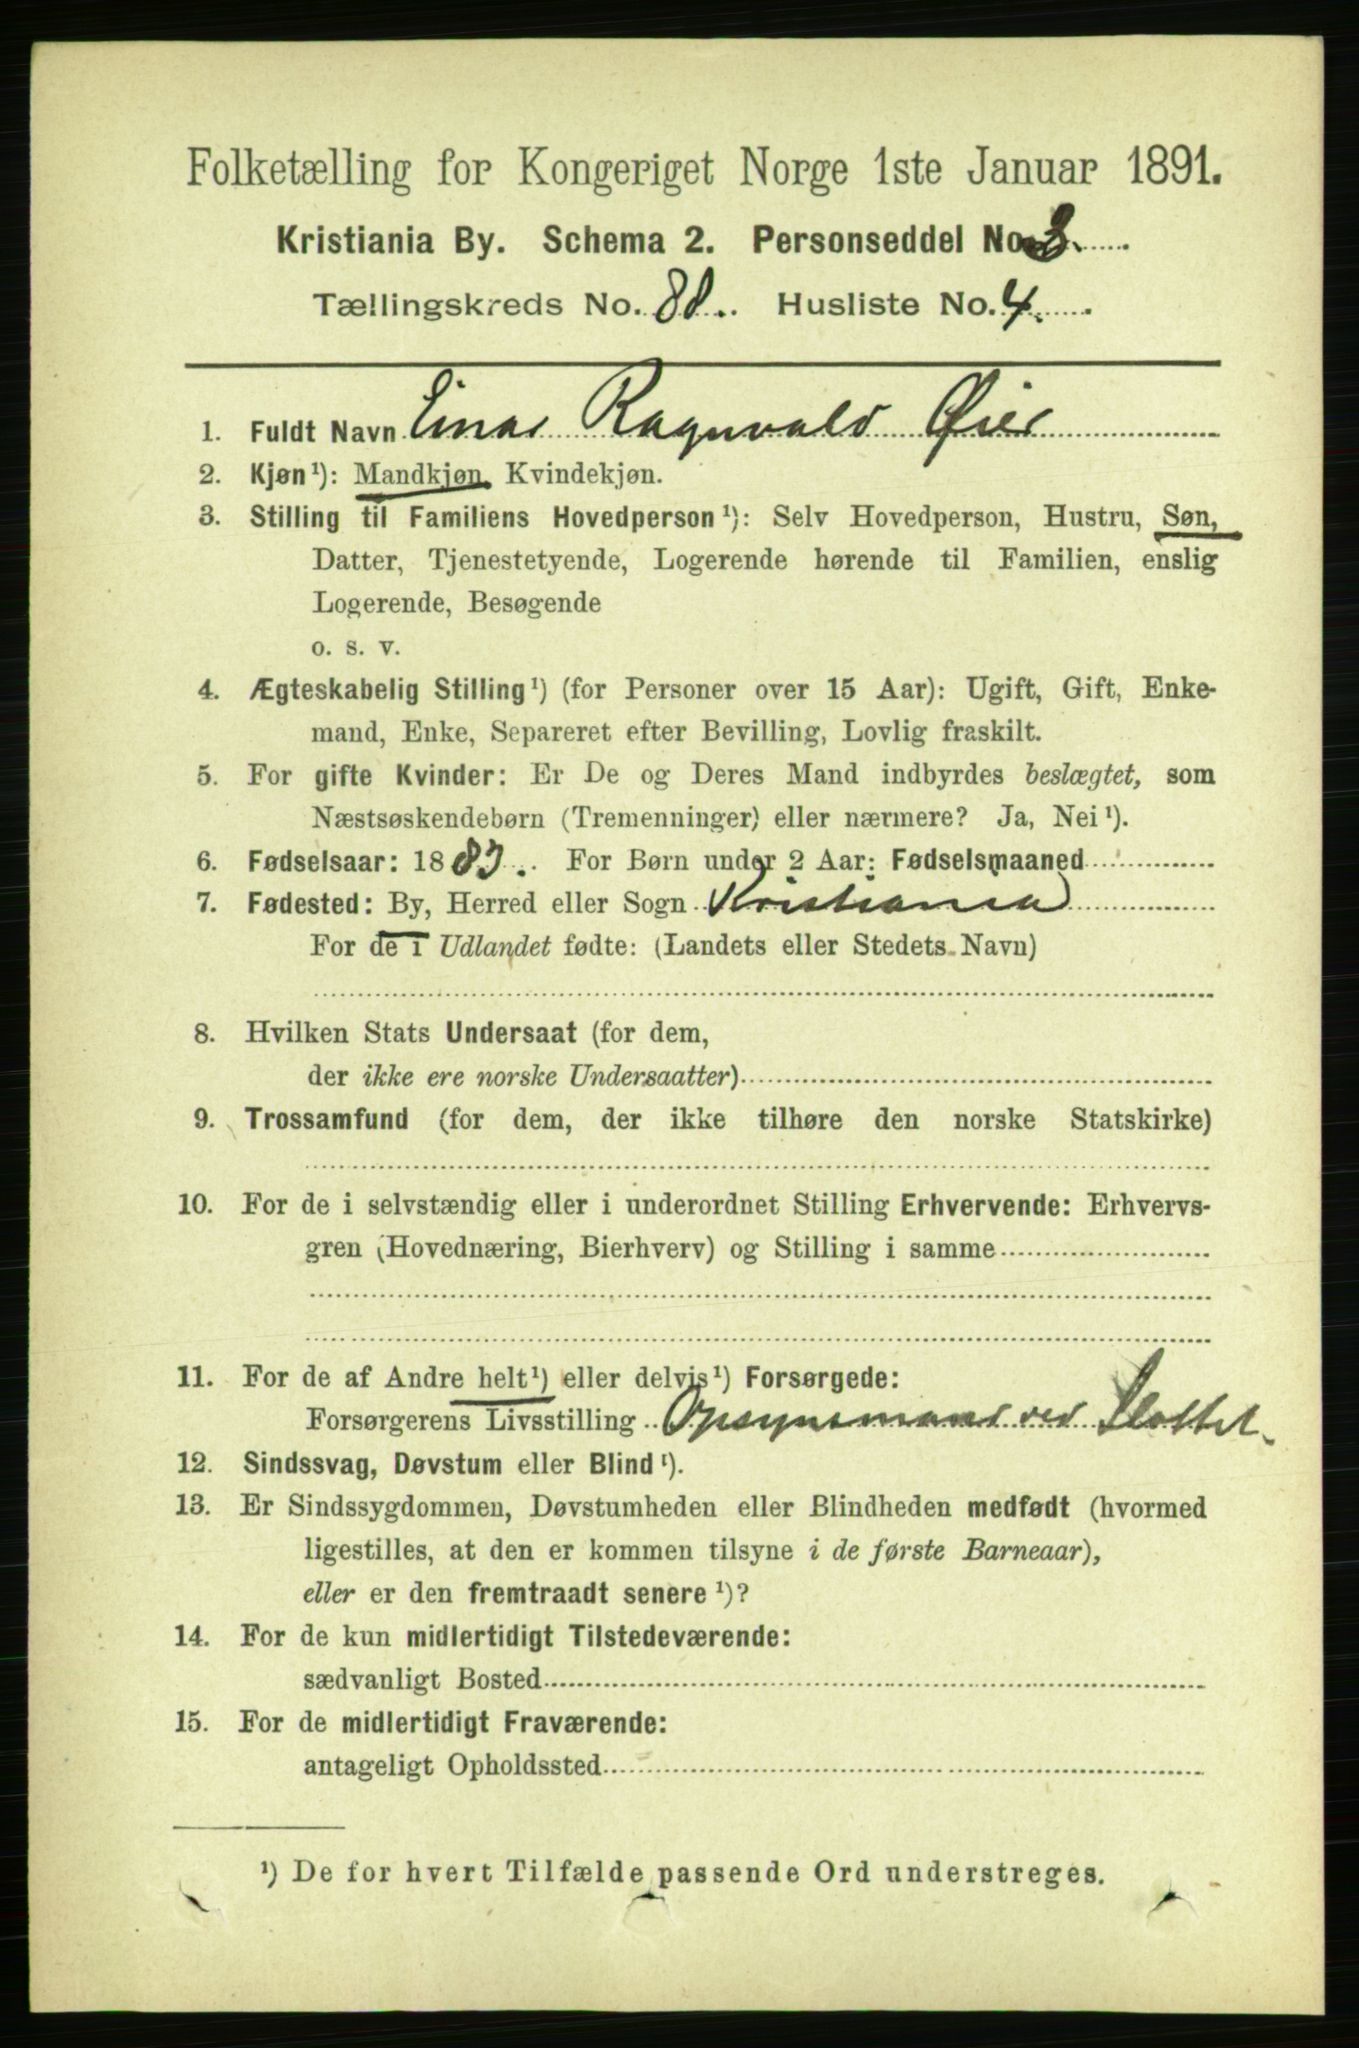 Folketælling for Kongeriget Norge 1ste Januar 1891.
Kristiania By. Schema 2. Personseddel No. 3.
Tællingskreds No. 88. Husliste No. 4.
1. Fuldt Navn Einar Ragnvald Øier
2. Kjøn¹): Mandkjøn, Kvindekjøn.
3. Stilling til Familiens Hovedperson¹): Selv Hovedperson, Hustru, Søn,
Datter, Tjenestetyende, Logerende hørende til Familien, enslig
Logerende, Besøgende
o. s. v.
4. Ægteskabelig Stilling¹) (for Personer over 15 Aar): Ugift, Gift, Enke-
mand, Enke, Separeret efter Bevilling, Lovlig fraskilt.
5. For gifte Kvinder: Er De og Deres Mand indbyrdes beslægtet, som
Næstsøskendebørn (Tremenninger) eller nærmere? Ja, Nei¹).
6. Fødselsaar: 1883. For Børn under 2 Aar: Fødselsmaaned
7. Fødested: By, Herred eller Sogn Kristiania
For de i Udlandet fødte: (Landets eller Stedets Navn)
8. Hvilken Stats Undersaat (for dem,
der ikke ere norske Undersaatter)
9. Trossamfund (for dem, der ikke tilhøre den norske Statskirke)
10. For de i selvstændig eller i underordnet Stilling Erhvervende: Erhvervs-
gren (Hovednæring, Bierhverv) og Stilling i samme
11. For de af Andre helt¹) eller delvis¹) Forsørgede:
Forsørgerens Livsstilling Opsynsmand ved Slottet.
12. Sindssvag, Døvstum eller Blind¹).
13. Er Sindssygdommen, Døvstumheden eller Blindheden medfødt (hvormed
ligestilles, at den er kommen tilsyne i de første Barneaar),
eller er den fremtraadt senere¹)?
14. For de kun midlertidigt Tilstedeværende:
sædvanligt Bosted
15. For de midlertidigt Fraværende:
antageligt Opholdssted
¹) De for hvert Tilfælde passende Ord understreges.